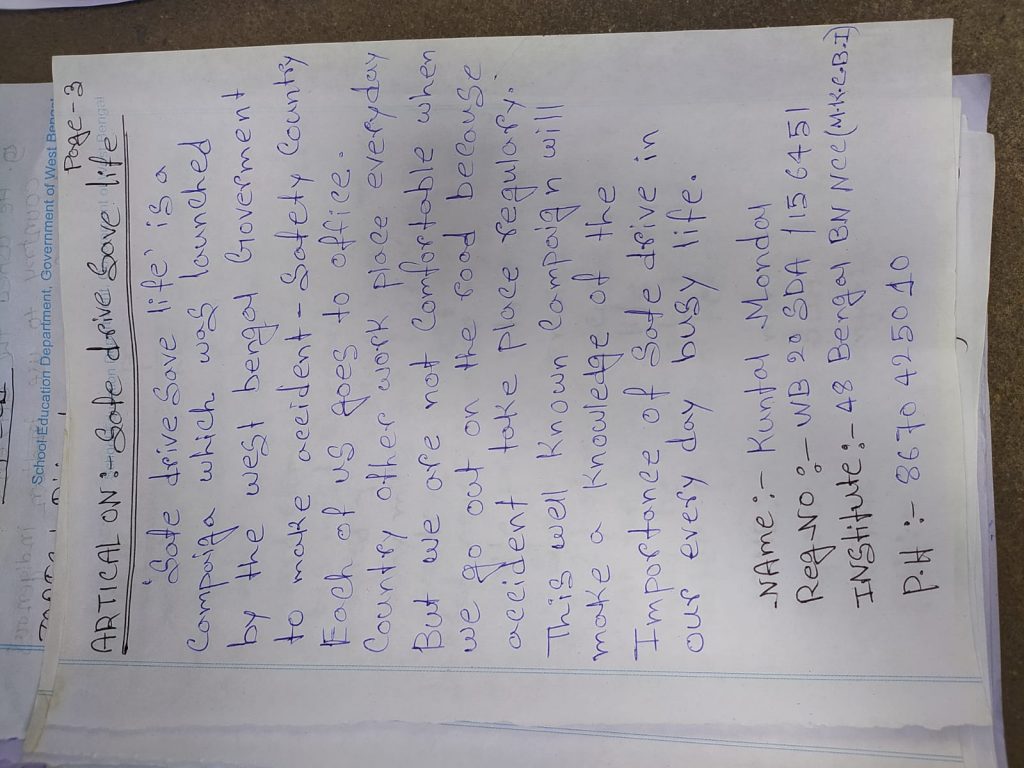 School Education Department, Government of West Bengal
Page-3
ARTICAL ON:- Safe drive Save life
'Safe drive Save life' is a
Compaig which was launched
by the west bengal Goverment
to make accident-Safety Country
Each of us goes to office.
Country other work place everyday
But we are not Comfortable when
we go out on the road because
accident take place regulary.
This well known Campaign will
make a Knowledge of the
Importance of Safe drive in
our every day busy life.
NAme:- Kuntal Mondal
Reg-No:- WB 20 SDA /156451
INStitute:- 48 Bengal BN NCC(M.K.C.B.I)
P.H:- 8670425010